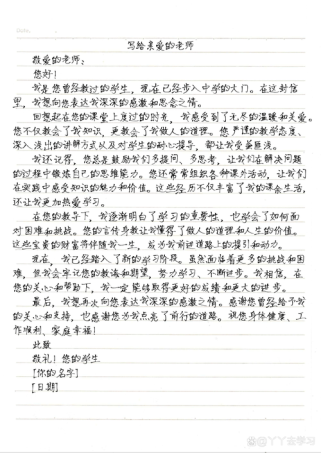 写给亲爱的老师
敬爱的老师：
您好！
我是您曾经教过的学生，现在已经步入中学的大门。在这封信
里，我想向您表达我深深的感激和思念之情。
回想起在您的课堂上度过的时光，我感受到了无尽的温暖和关爱。
您不仅教会了我知识，更教会了我做人的道理。您严谨的教学态度、
深入浅出的讲解方式以及对学生的耐心指导，都让我受益匪浅。
我还记得，您总是鼓励我们多提问、多思考，让我们在解决问题
的过程中锻炼自己的思维能力。您还常常组织各种课外活动，让我们
在实践中感受知识的魅力和价值。这些经历不仅丰富了我的课余生活，
还让我更加热爱学习。
在您的教导下，我逐渐明白了学习的重要性，也学会了如何面
对困难和挑战。您的言传身教让我懂得了做人的道理和人生的价值。
这些宝贵的财富将伴随我一生，成为我前进道路上的指引和动力。
现在，我已经踏入了新的学习阶段。虽然面临着更多的挑战和困
难，但我会牢记您的教诲和期望，努力学习、不断进步。我相信，在
您的关心和帮助下，我一定能够取得更好的成绩和更大的进步。
最后，我想再次向您表达我深深的感激之情。感谢您曾经给予我
的关心和支持，也感谢您为我点亮了前行的道路。祝您身体健康、工
作顺利、家庭幸福！
此致
敬礼！您的学生
[你的名字]
[日期]
@丫丫去学习